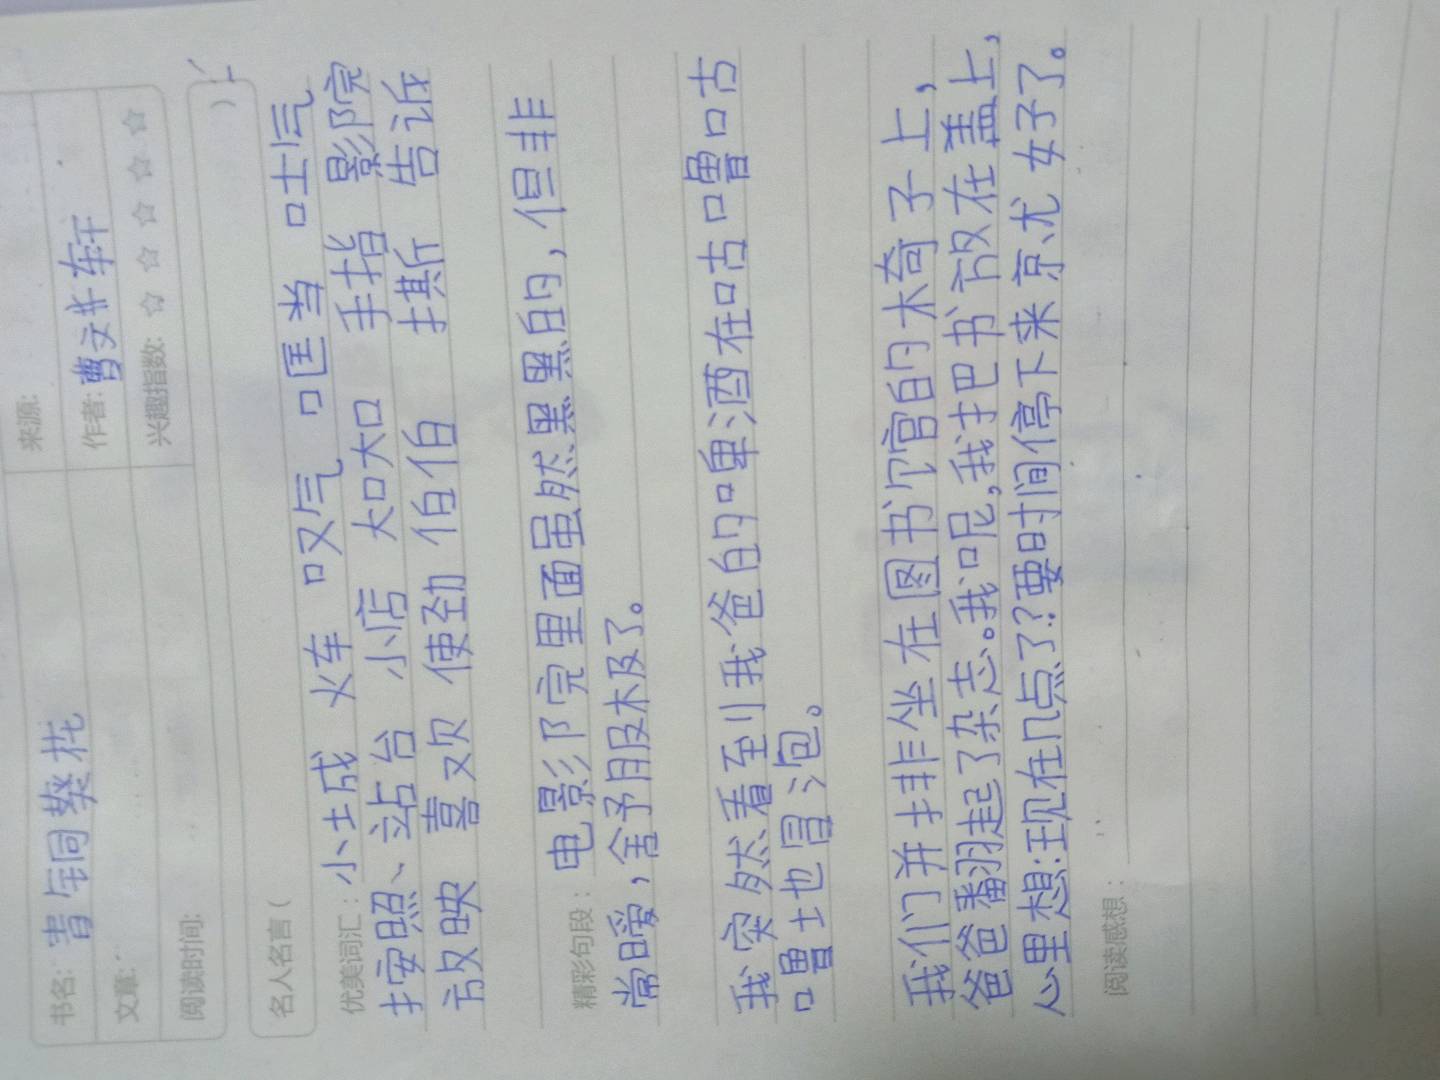 书名: 青铜葵花 来源:
文章: 作者: 曹文轩
阅读时间: 兴趣指数: ☆ ☆ ☆ ☆ ☆
名人名言（ ）
优美词汇: 小城 火车 叹气 哐当 吐气
按照、站台 小店 大口大口 手指 影院
放映 喜欢 使劲 伯伯 撕 告诉
精彩句段: 电影院里面虽然黑黑的,但非
常暖,舒服极了。
我突然看到我爸的啤酒在咕噜咕
噜地冒泡。
我们并排坐在图书馆的椅子上,
爸爸翻起了杂志。我呢,我把书放在膝盖上,
心里想:现在几点了?要时间停下来就好了。
阅读感想: